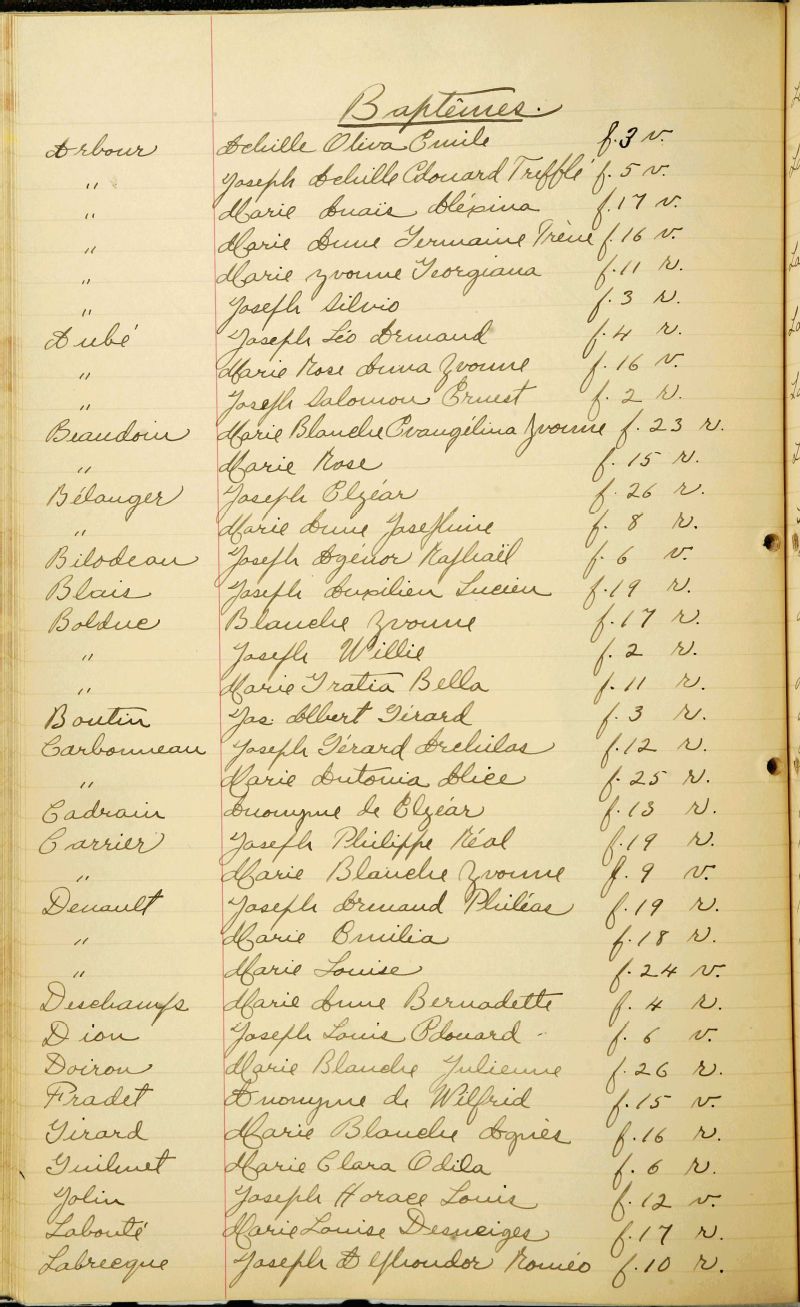 Baptêmes.
Arbour Achille Oliva Emile f. 3 v.
" Joseph Achille Edouard Trefflé f. 5 v.
" Marie Anaïs Aléxina f. 17 v.
" Marie Anne Germaine Irène f. 16 v.
" Marie Yvonne Georgiana f. 11 r.
" Joseph Silvio f. 3 r.
Aubé Joseph Léo Armand f. 4 r.
" Marie Rose Anna Yvonne f. 16 v.
" Joseph Salomon Ernest f. 2 r.
Beaudoin Marie Blanche Evangélina Yvonne f. 23 r.
" Marie Rose f. 15 r.
Bélanger Joseph Elzéar f. 26 r.
" Marie Anne Josephine f. 8 r.
Bilodeau Joseph Agénor Raphaël f. 6 v.
Blais Joseph Auxilien Lucien f. 19 r.
Bolduc Blanche Yvonne f. 17 r.
" Joseph Willie f. 2 r.
" Marie Gratia Bella f. 11 r.
Boutin Jos. Albert Gérard f. 3 r.
Carbonneau Joseph Gérard Archilas f. 12 r.
" Marie Antonia Alice f. 25 r.
Cadrain Anonyme de Elzéar f. 13 r.
Carrier Joseph Philippe Réal f. 19 r.
" Marie Blanche Yvonne f. 9 v.
Denault Joseph Armand Philéas f. 19 r.
" Marie Emilia f. 18 r.
" Marie Louise f. 24 v.
Deschamps Marie Anne Bernadette f. 4 r.
Dion Joseph Louis Edouard f. 6 v.
Doiron Marie Blanche Julienne f. 26 r.
Fradet Anonyme de Wilfrid f. 15 v.
Girard Marie Blanche Agnès f. 16 r.
Guilmet Marie Clara Odila f. 6 r.
Jolin Joseph Horace Louis f. 12 v.
Labonté Marie Louise Desneiges f. 17 r.
Labrecque Joseph Alphondor Roméo f. 10 r.